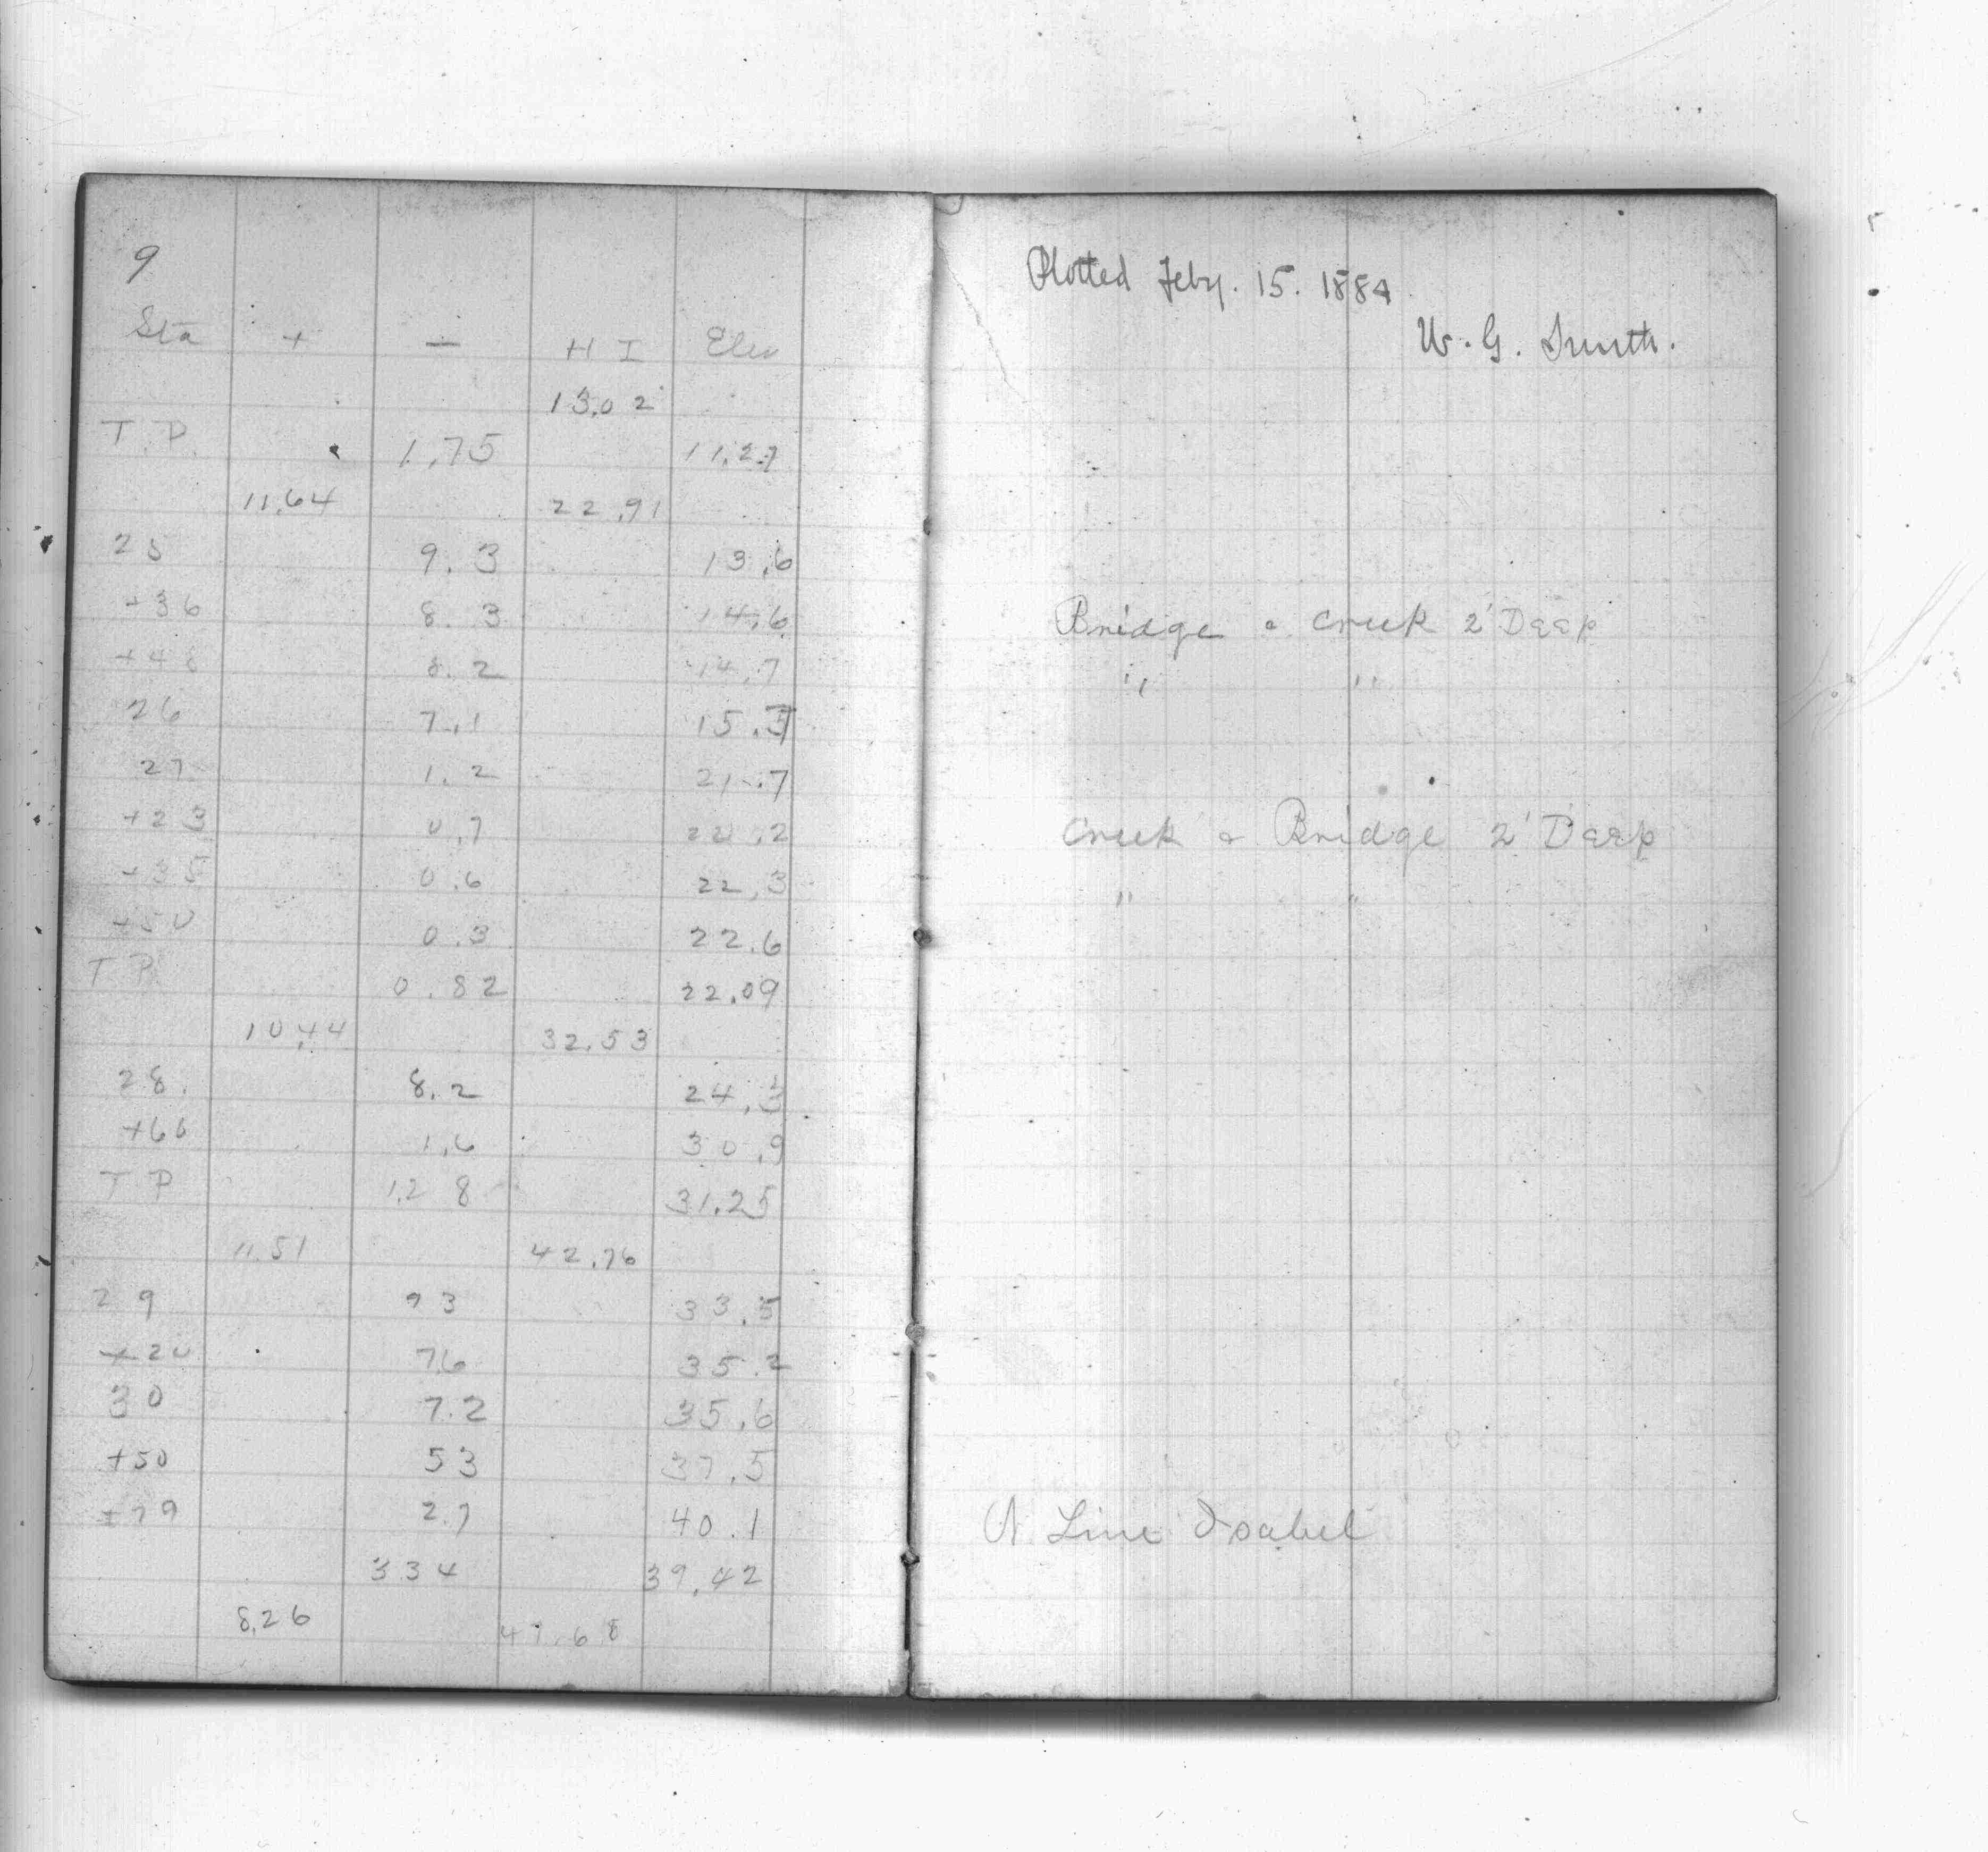 9
Sta + — H I Elev
13.02
T.P. 1.75 11.27
11.64 22.91
25 9.3 13.6
+36 8.3 14.6
+48 8.2 14.7
26 7.1 15.
27 1.2 21.7
+23 0.7 22.2
+35 0.6 22.3
+50 0.3 22.6
T P. 0.82 22.09
10.44 32.53
28. 8.2 24.3
+66 1.6 30.9
T P 1.28 31.25
11.51 42.76
29 93 33.5
+20 76 35.2
30 7.2 35.6
+50 53 37.5
+79 2.7 40.1
334 39.42
8.26 47.68
Plotted Feby. 15. 1884
W. G. Smith.
Bridge & Creek 2' Deep
" "
Creek & Bridge 2' Deep
" "
N. Line Isabel